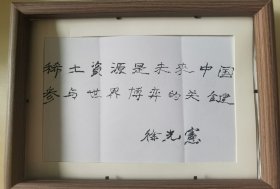 稀土資源是未來中国
参与世界博弈的关鍵
徐光憲